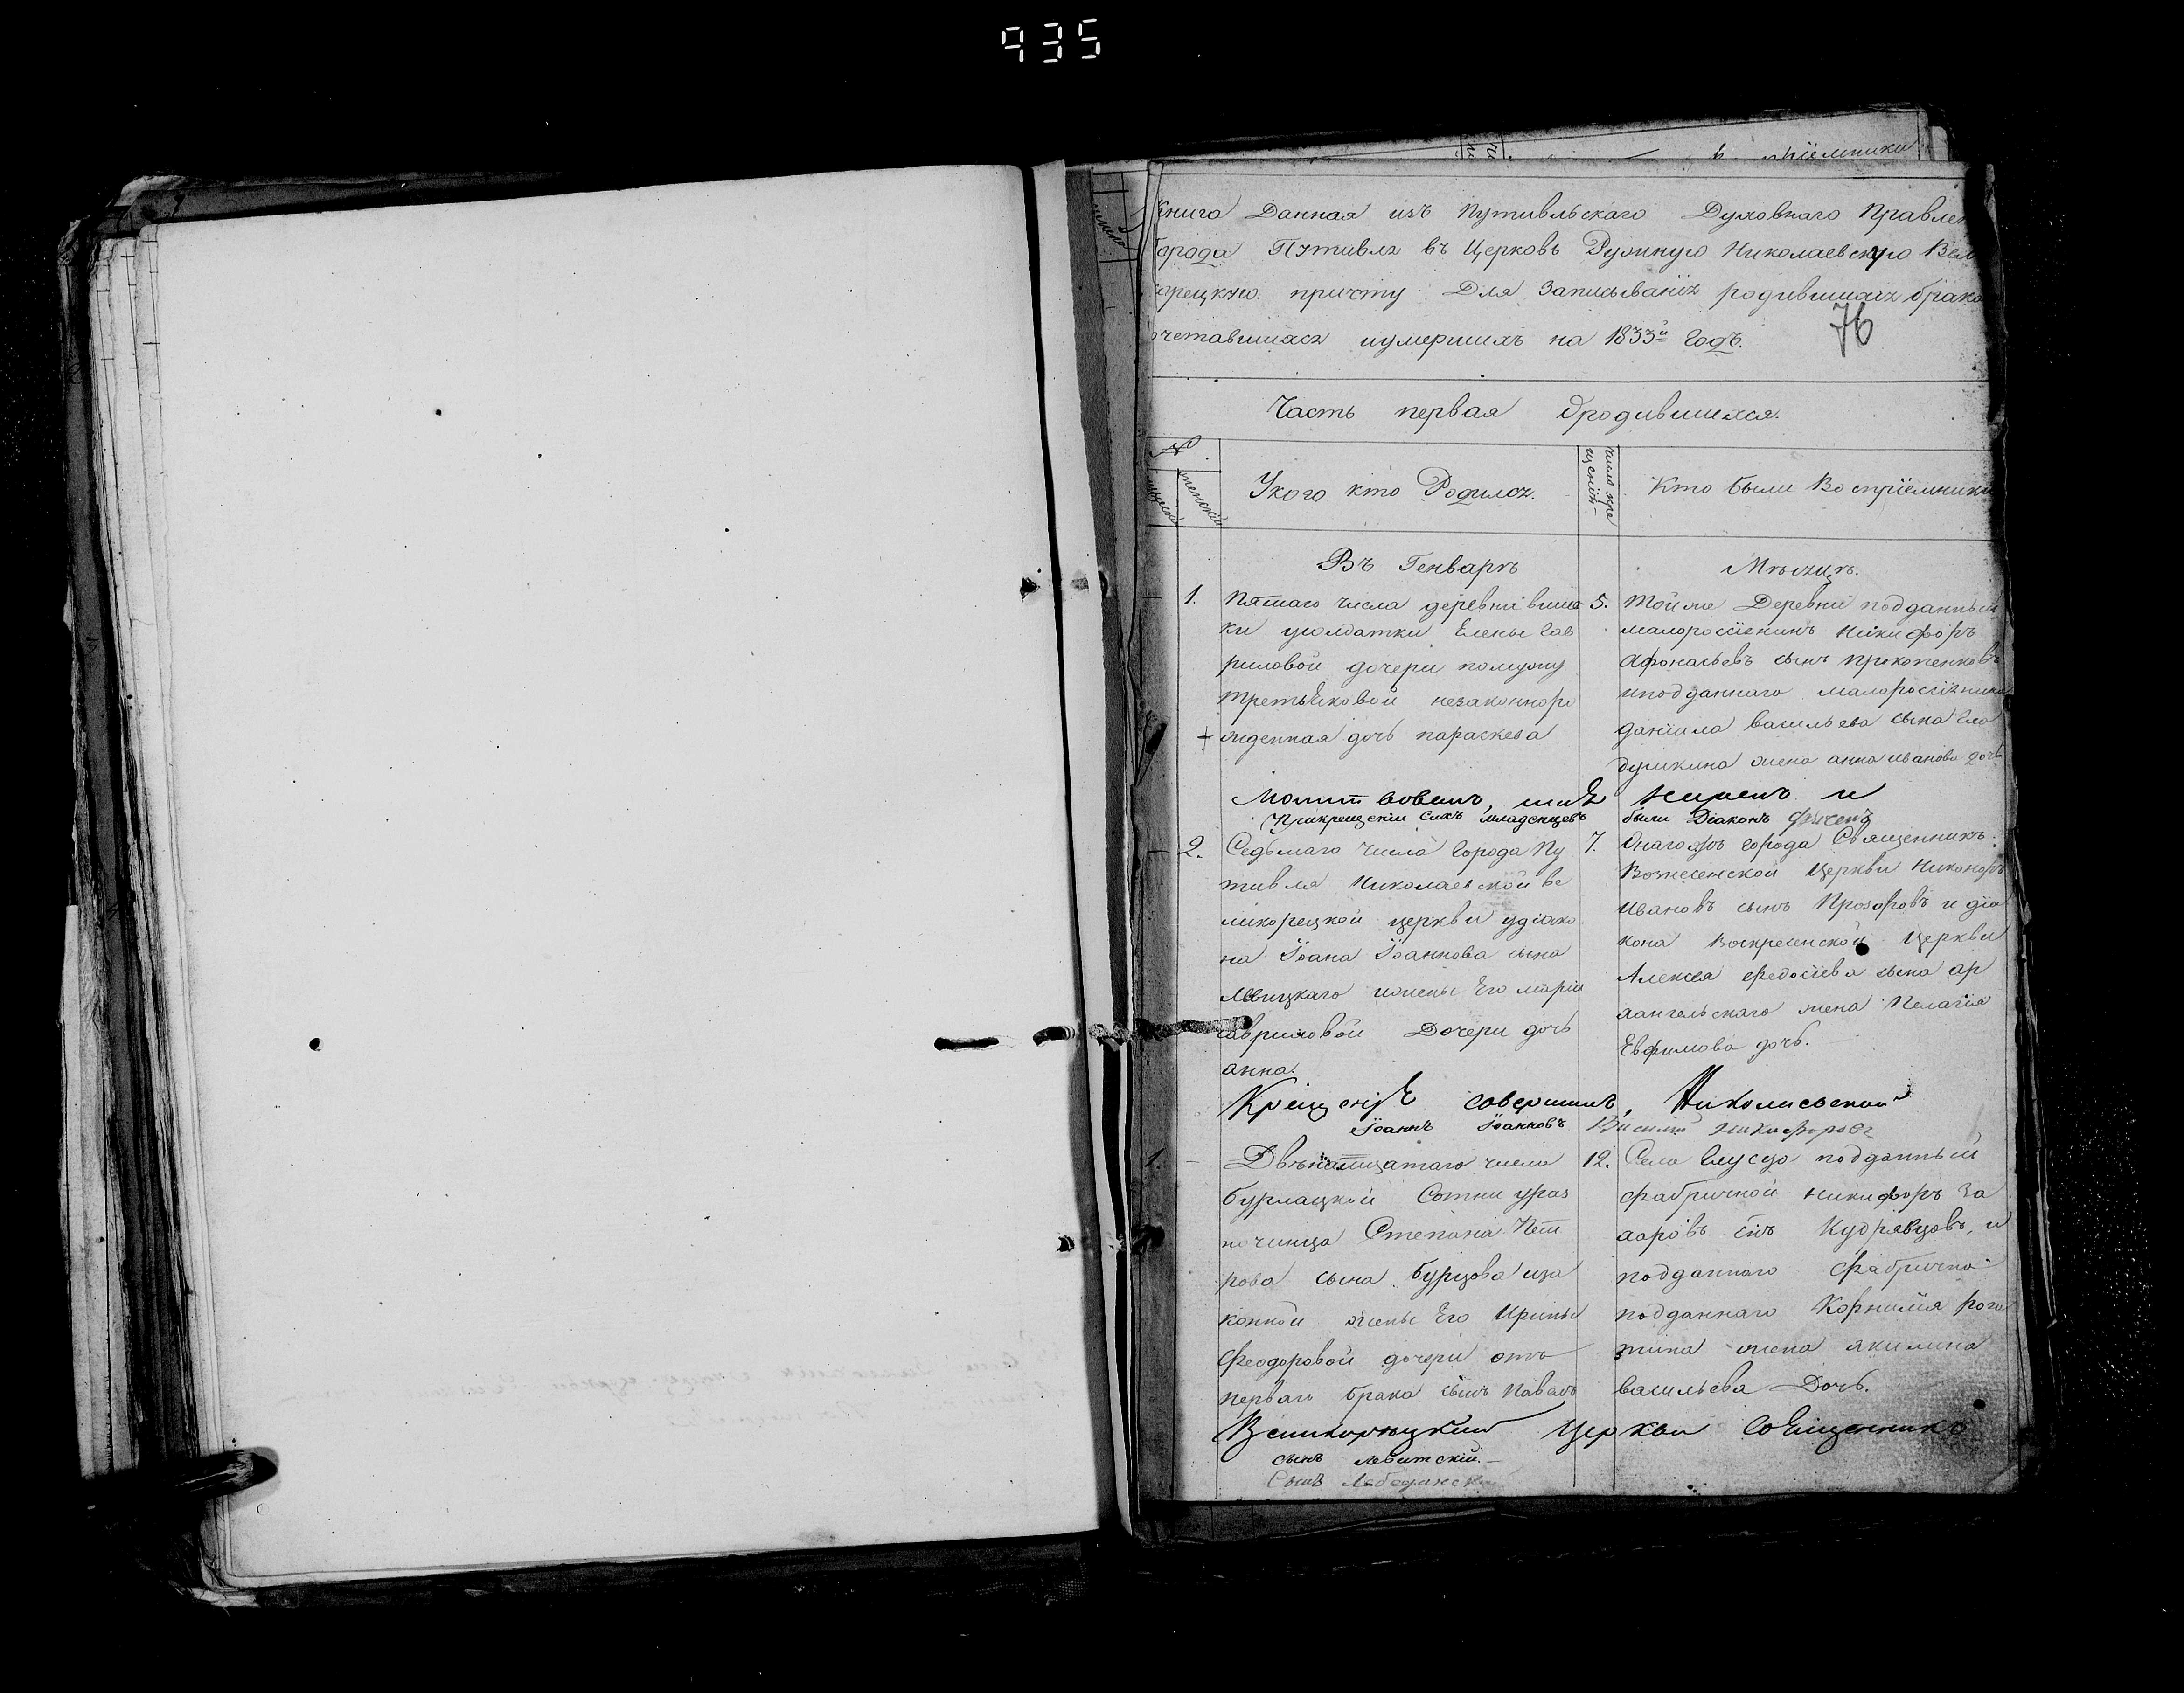 935
Книга Данная изъ Путивльскаго Духовнаго Правлен
города Путивля въ Церковь Николаевскую Вели
корецкую причту Для Записыванія родившихся брако
сочетавшихся иумершихъ на 1833й Годъ.
76
Часть первая Ородившихся.
№
женскій
Укого кто Родился.
число кре
щенія
Кто были Воспріемники
Въ Генварѣ
Мѣсяцѣ.
1. Пятаго числа деревни
ки усолдатки Елены Гав
риловой дочери помужу
Третьяковой незаконноро
жденная дочь параскева
5. Тойже Деревни подданный
малороссіенинъ Никифоръ
Афонасьевъ сынъ прокопенковъ
иподданнаго малороссіянина
даніила васильева сына
жена анна иванова дочь
Молитвовалъ, имя нарекъ и
Прикрещеніи Сихъ младенцевъ были Діаконъ
2. Седьмаго Числа города Пу
тивля Николаевской ве
ликорецкой церкви удіако
на Іоана Іоаннова сына
Левицкаго ижены Его маріи
гавриловой Дочери дочь
анна.
7. Онагожъ города Священникъ
Вознесенской Церкви Никоноръ
Ивановъ сынъ Прозоровъ и діа
кона Воскресенской Церкви
Алексея Федосіева сына ар
хангельскаго жена Пелагія
Евфимова дочь.
Крещеніе совершилъ, Николаевской
Іоаннъ Іоанновъ Василій Никифоровъ
1. Двѣнатцатаго числа
бурлацкой Сотниураз
ночинца Степана Пет
рова сына бурцова иза
конной жены Его Ирины
Феодоровой дочери отъ
перваго брака сынъ Павелъ
12. Села подданный
Фабричной никифоръ За
харовъ снъ Кудрявцовъ, и
подданнаго Фабрично
подданнаго Корнилія рога
тина жена якилина
васильева Дочь.
Великорецкой Церкви Священникъ
сынъ левитскій.
Сынъ